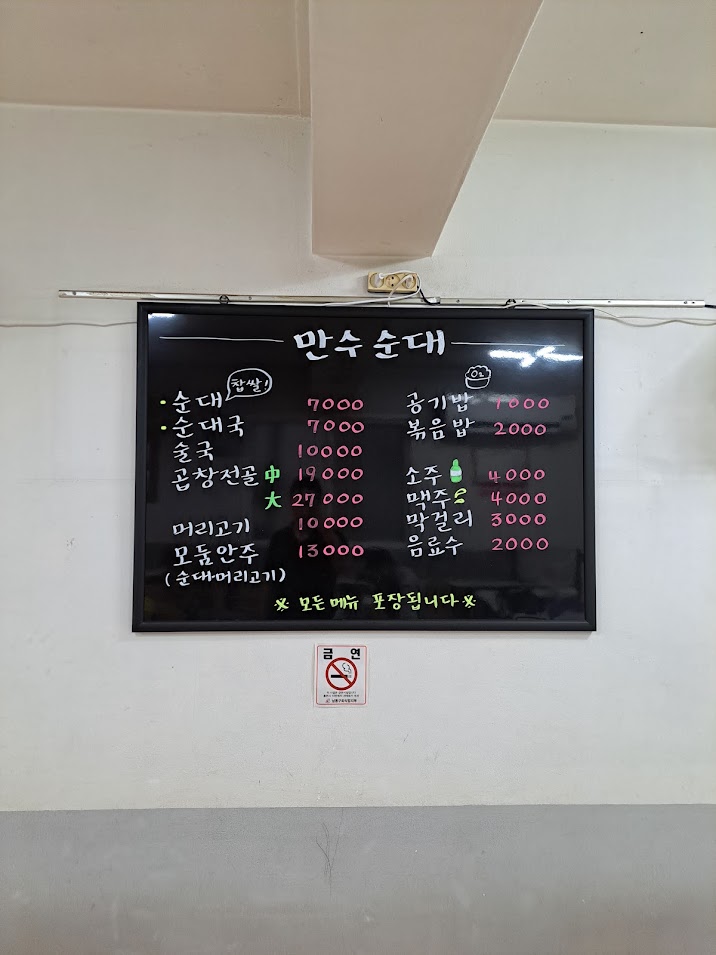 만수순대
찹쌀!
순대 7000
순대국 7000
술국 10000
곱창전골 中 19000
大 27000
머리고기 10000
모둠안주 13000
(순대머리고기)
공기밥 1000
볶음밥 2000
소주 4000
맥주 4000
막걸리 3000
음료수 2000
※ 모든메뉴 포장됩니다 ※
금 연